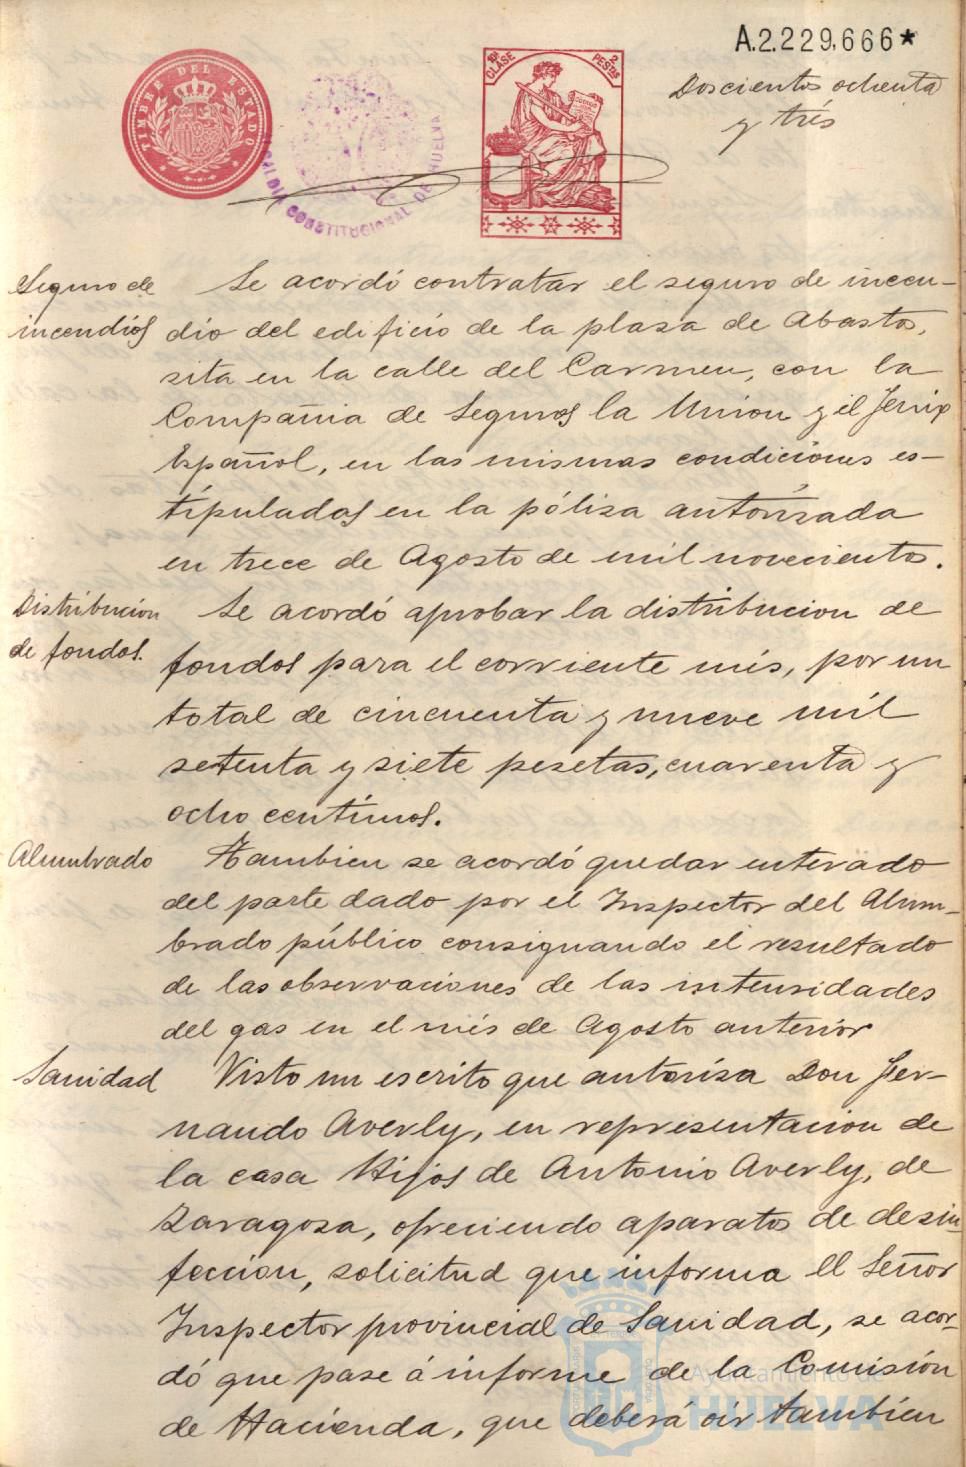 A.2.229,666*
Doscientos ochenta
y trés
TIMBRE DEL ESTADO
ALCALDIA CONSTITUCIONAL DE HUELVA
10ª CLASE
2 PESTAS
Seguro de
incendios
Se acordó contratar el seguro de incen-
dio del edificio de la plasa de Abastos,
sita en la calle del Carmen, con la
Compañia de Seguros la Union y el Fenix
Español, en las mismas condiciones es-
tipulados en la póliza autorisada
en trece de Agosto de mil novecientos.
Distribucion
de fondos.
Se acordó aprobar la distribucion de
fondos para el corriente més, por un
total de cincuenta y nueve mil
setenta y siete pesetas, cuarenta y
ocho centímos.
Alumbrado
Tambien se acordó quedar enterado
del parte dado por el Inspector del Alum-
brado público consignando el resultado
de las observaciones de las intensidades
del gas en el més de Agosto anterior
Sanidad
Visto un escrito que autorisa Don Fer-
nando Averly, en representacion de
la casa Hijos de Antonio Averly, de
Zaragosa, ofreciendo aparatos de desin-
feccion, solicitud que informa el Señor
Inspector provincial de Sanidad, se acor-
dó que pase á informe de la Comisión
de Hacienda, que deberá oir tambien
Ayuntamiento de
HUELVA